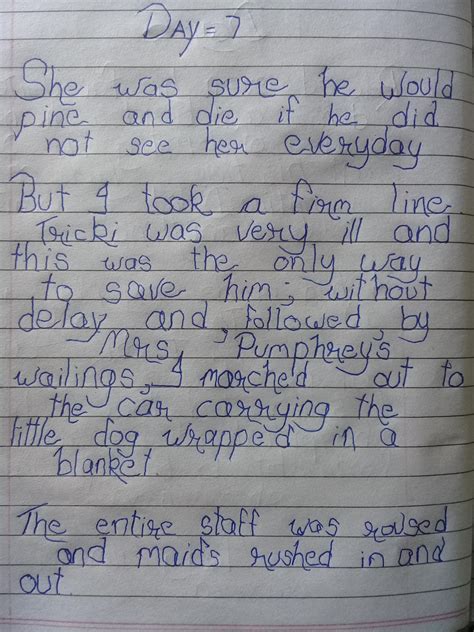 DAY = 7
She was sure he would
pine and die if he did
not see her everyday
But I took a firm line.
Tricki was very ill and
this was the only way
to save him; without
delay and, followed, by
Mrs, Pumphrey's
wailings, I marched out to
the car carrying the
little dog wrapped in a
blanket.
The entire staff was roused
and maids rushed in and
out.